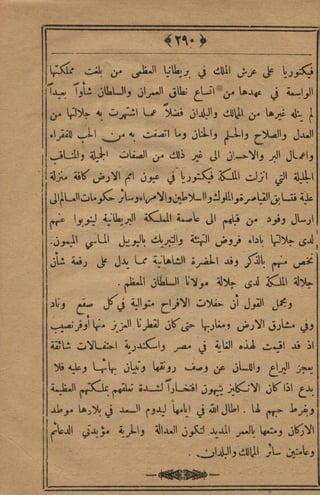 ﴿ ٢٩٠ ﴾
فيكتوريا على عرش الملك في بريطانيا العظمى من بلغت مملكتها
الواسعة في عهدها من اتساع نطاق العمران والسلطان شأواً بعيداً
لم ينله غيرها من الممالك والبلدان فضلاً عما اشتهرت به جلالتها من
العدل والصلاح والحلم والحنان وما اتصفت به من الحب للفقراء
واعمال البر والاحسان الى غير ذلك من الصفات الجميلة والمناقب
الجليلة التي انزلت الملكة فيكتوريا في عيون امم الارض كافة منزلة
علية فتسابق القياصرة والملوك والسلاطين والامراء وسائر حكومات العالم الى
ارسال وفود من قبلهم الى عاصمة المملكة البريطانية لينوبوا عنهم
لدى جلالتها باداء فروض التهنئة والتبريك باليوبيل الماسي الميمون.
نخص منهم بالذكر وفد الحضرة الشاهانية مما يدل على رفعة شأن
جلالة الملكة لدى جلالة مولانا السلطان المعظم .
ومجمل القول أن حفلات الافراح متوالية في كل صقع وناد
وفي مشارق الارض ومغاربها حتى كان لقطرنا العزيز منها أوفر نصيب
اذ قد اقيمت لهذه الغاية في مصر واسكندرية احتفالات شائقة
يعجز اليراع واللسان عن وصف رونقها وتبيان بهائها وعليه فلا
بدع اذا كان الانكليز يتيهون افتخاراً لشدة تعلقهم بملكتهم العظيمة
وبفرط حبهم لها . اطال الله في ايامها ليدوم السعد في بلادها موطد
الاركان ومتعها بالعمر المديد لتكون العدالة والحرية مؤيدتي الدعائم
وعامتين سائر الممالك والبلدان .